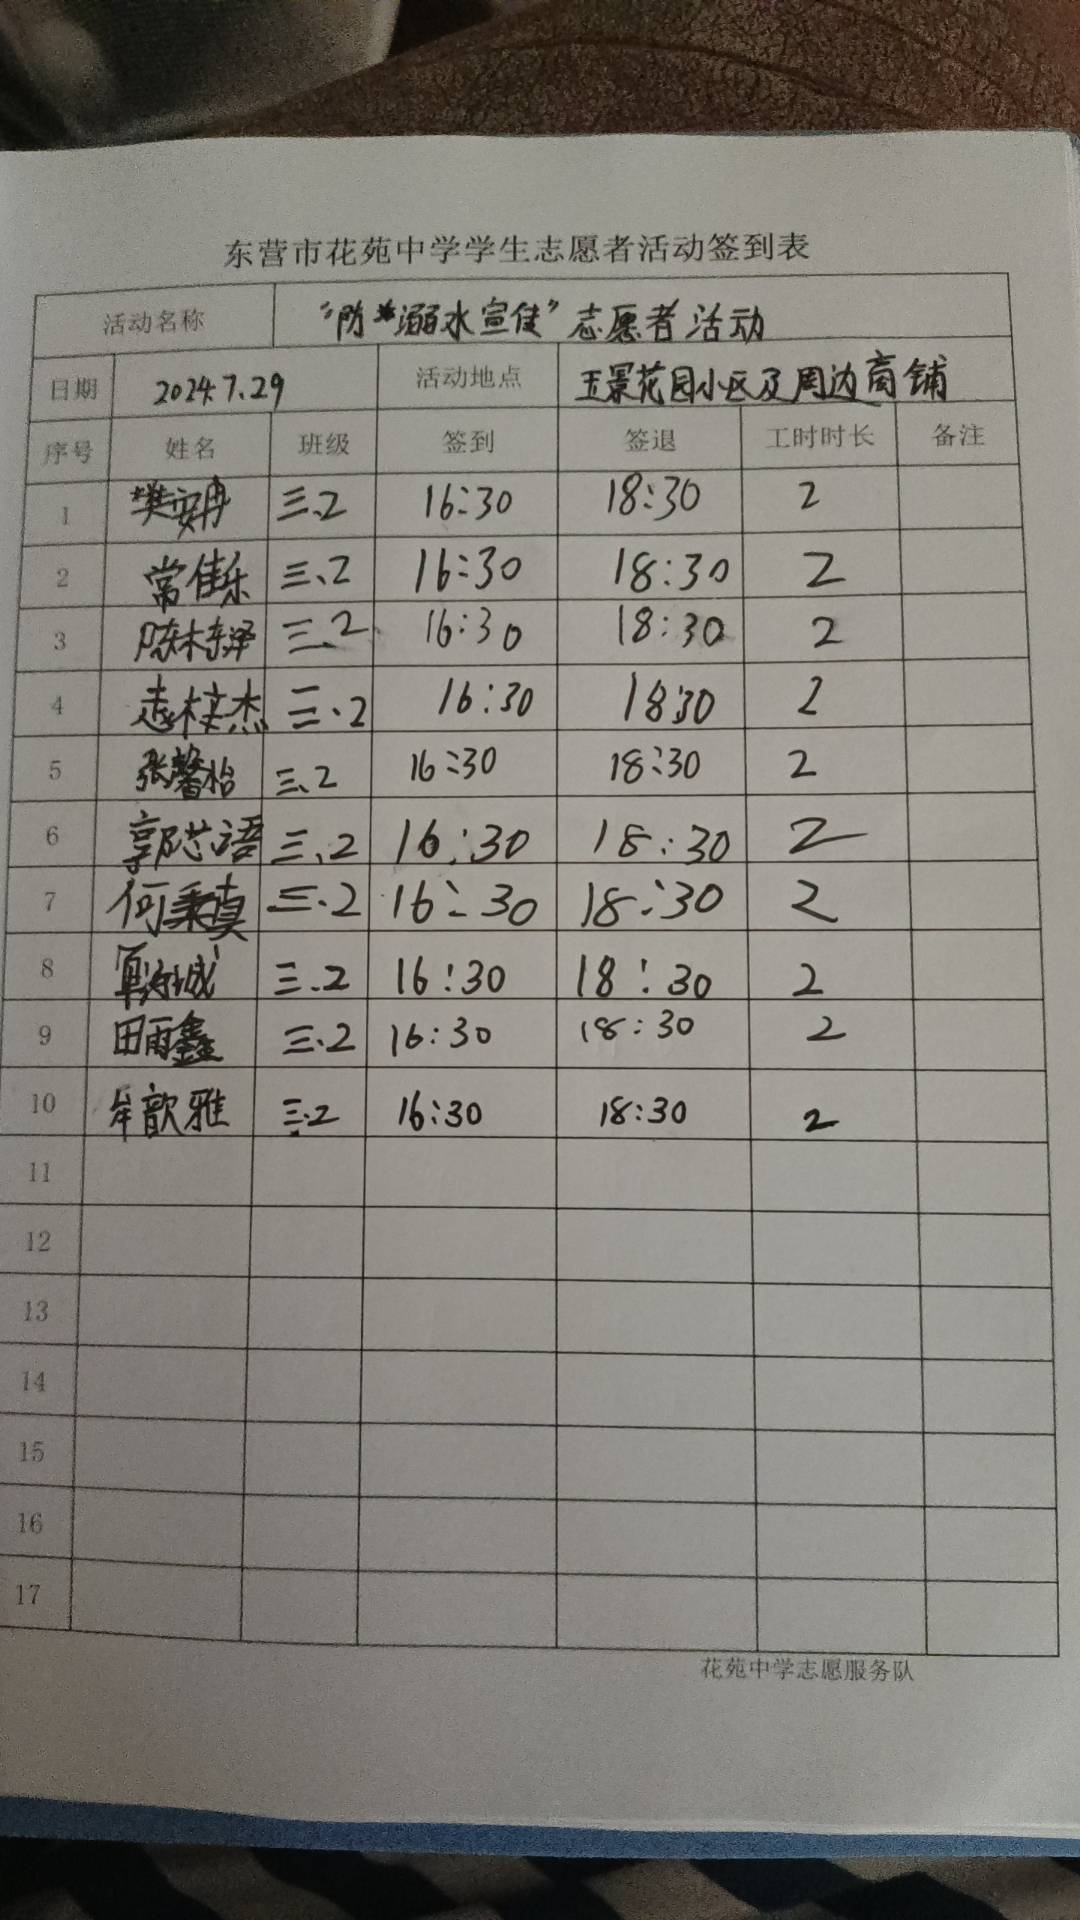 东营市花苑中学学生志愿者活动签到表
活动名称 “防溺水宣传”志愿者活动
日期 2024.7.29 活动地点 玉景花园小区及周边商铺
序号 姓名 班级 签到 签退 工时时长 备注
1 樊安冉 三.2 16:30 18:30 2
2 常佳乐 三、2 16:30 18:30 2
3 陈木泽 三.2 16:30 18:30 2
4 三.2 16:30 18:30 2
5 张馨怡 三、2 16:30 18:30 2
6 郭芯语 三、2 16:30 18:30 2
7 何秉真 三.2 16:30 18:30 2
8 三.2 16:30 18:30 2
9 田雨鑫 三.2 16:30 18:30 2
10 牟歆雅 三.2 16:30 18:30 2
11
12
13
14
15
16
17
花苑中学志愿服务队